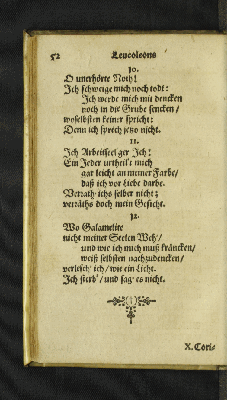 52 Leucoleons
10.
O unerhörte Noth!
Ich schweige mich noch todt:
Ich werde mich mit dencken
noch in die Grube sencken/
woselbsten keiner spricht:
Denn ich sprech jetzo nicht.
11.
Ich Arbeitseelger Ich!
Ein Jeder urtheilt mich
gar leicht an meiner Farbe/
daß ich vor Liebe darbe.
Verrath ichs selber nicht;
verräths doch mein Gesicht.
12.
Wo Galamelite
nicht meiner Seelen Weh/
und wie ich mich muß kräncken/
weiß selbsten nachzudencken/
verlesch ich/ wie ein Licht.
Ich sterb'/ und sag es nicht.
X. Cori-